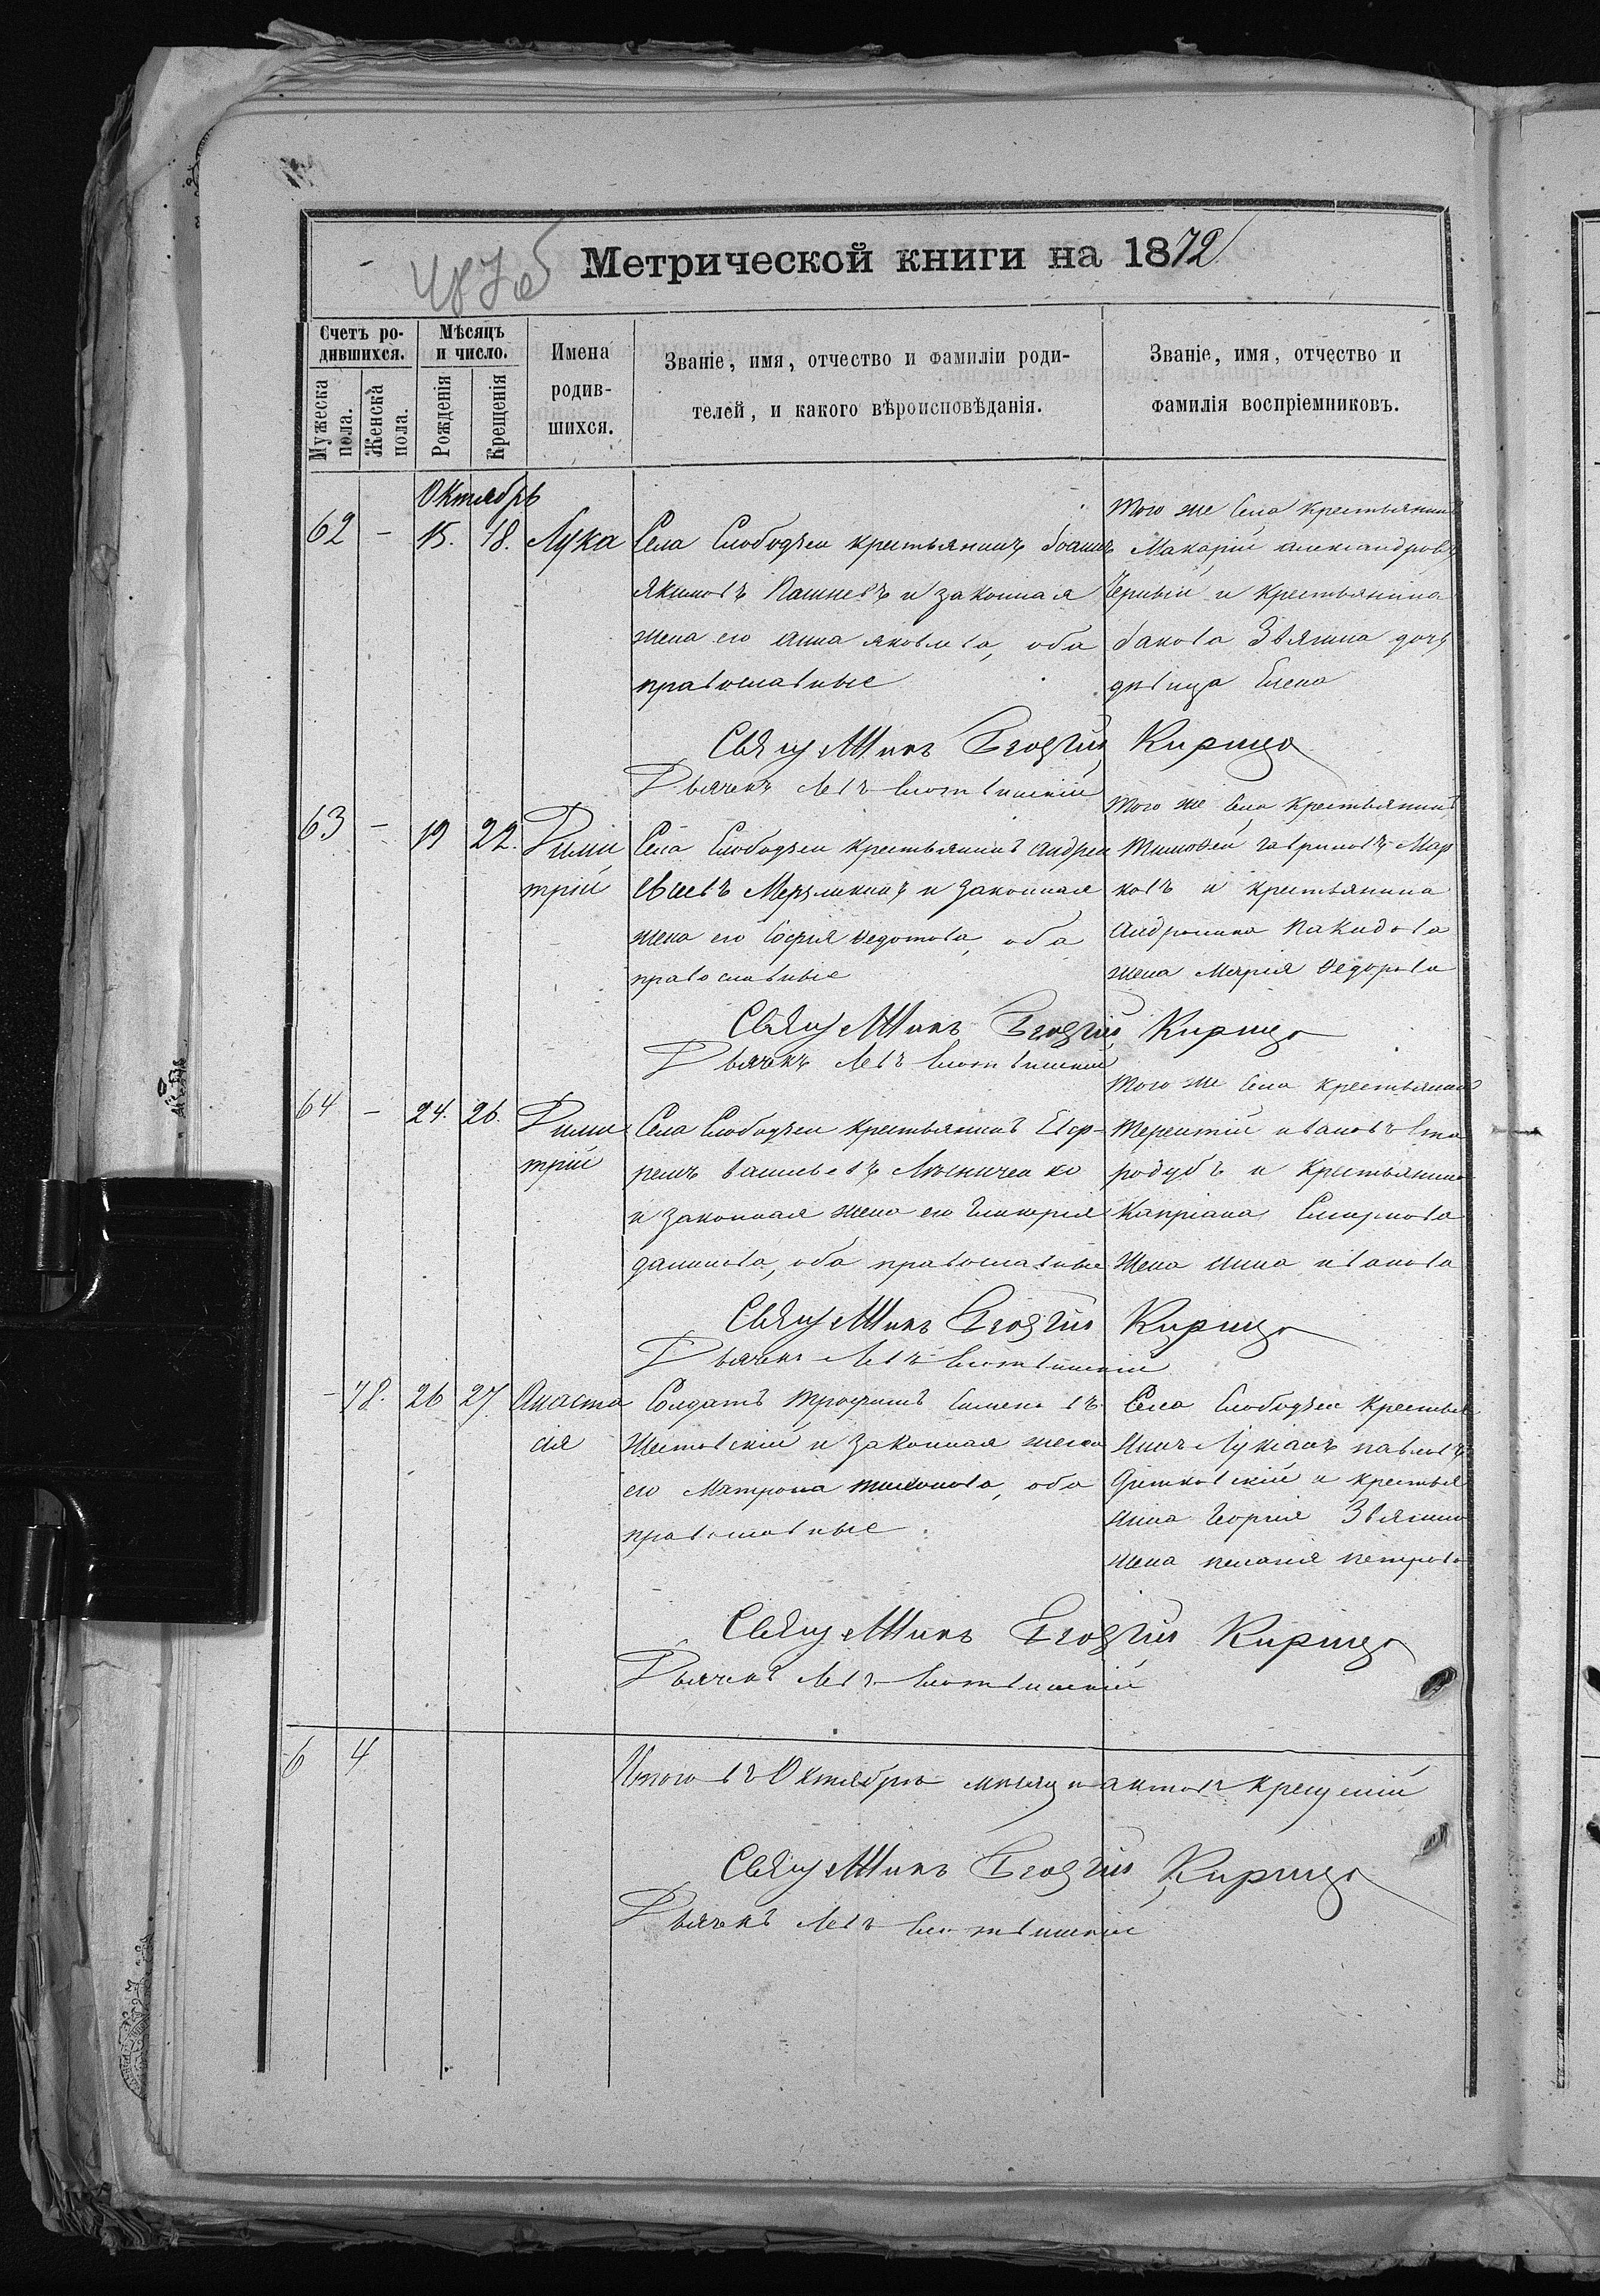 487 об
Метрической книги на 1872
Счетъ ро-
дившихся.
Мужеска
пола.
Женска
пола.
Мѣсяцъ
и число.
Рожденія
Крещенія
Имена
родив-
шихся.
Званіе, имя, отчество и фамиліи роди-
телей, и какого вѣроисповѣданія.
Званіе, имя, отчество и
фамилія воспріемниковъ.
Октябрь
62 - 15. 18. Лука
Села Слободзеи крестьянинъ Іоаннъ
Якимовъ Пашневъ и законная
жена его Анна Яковлева, оба
православные
Того же Села крестьянинъ
Макарій Александровъ
Черный и крестьянина
Звягина дочь
дѣвица Елена
Священникъ Георгій Кирица
Дьячекъ Левъ
63 - 19 22. Дими
трій
Села Слободзеи крестьянинъ Андрей
Мерзликинъ и законная
жена его Софія Ѳедотова, оба
православные
Того же Села крестьянинъ
Тимоѳей Гавриловъ Мар
ковъ и крестьянина
Андроника
жена Марія Ѳедорова
Священникъ Георгій Кирица
Дьячекъ Левъ
64 - 24. 26. Дими
трій
Села Слободзеи крестьянинъ Евф-
ремъ Васильевъ
и законная жена его Гликерія
Данилова, оба православные
Того же Села крестьянинъ
Терентій Ивановъ Ста
родубъ и крестьянина
Капріана Смирнова
жена Анна Иванова
Священникъ Георгій Кирица
Дьячекъ Левъ
- 48. 26 27. Анаста
сія
Солдатъ Трофимъ Симеоновъ
Шестовскій и законная жена
его Матрона Тихонова, оба
православные
Села Слободзеи крестья
нинъ Лукіанъ Павловъ
и крестья
нина Георгія Звягина
жена Пелагія Петрова
Священникъ Георгій Кирица
Дьячекъ Левъ
6 4 Итого въ Октябрѣ мѣсяцѣ актовъ крещеній
Священникъ Георгій Кирица
Дьячекъ Левъ